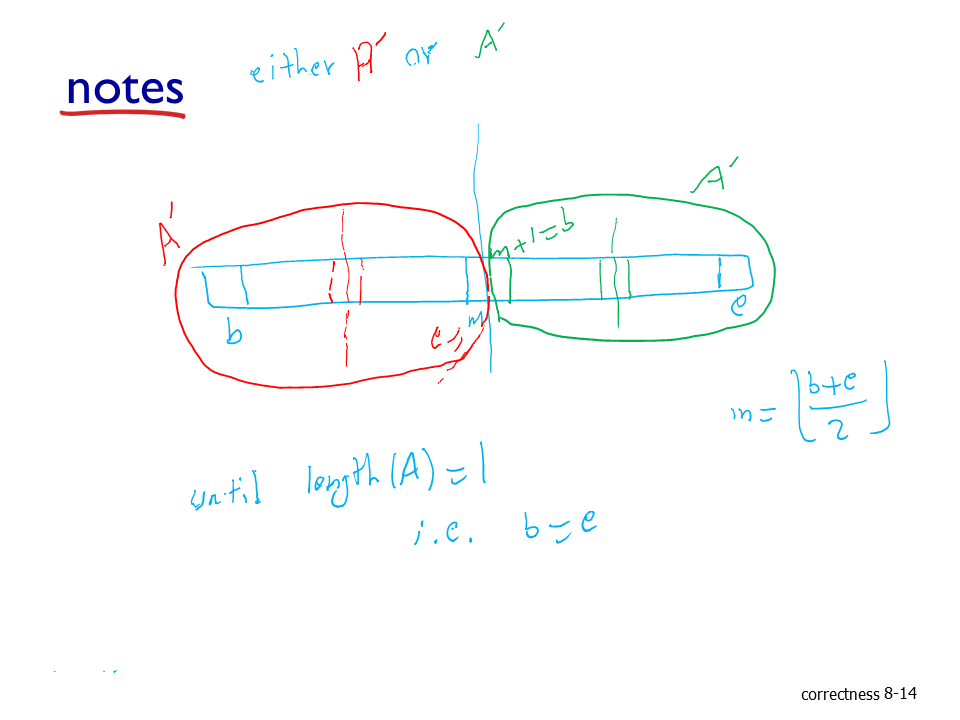 either A' or A'
notes
A'
A'
m+1=b
b
e=
m
e
m = ⌊(b+e)/2⌋
until length(A) = 1
i.e. b = e
correctness 8-14